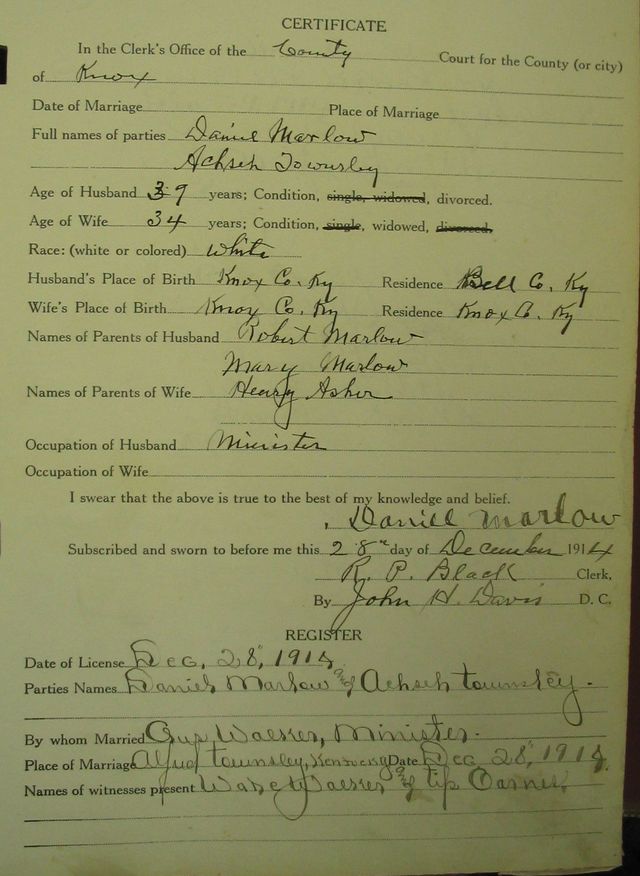 CERTIFICATE
In the Clerk's Office of the County Court for the County (or city)
of Knox
Date of Marriage Place of Marriage
Full names of parties Daniel Marlow
Achseh Townsley
Age of Husband 39 years; Condition, single, widowed, divorced.
Age of Wife 34 years; Condition, single, widowed, divorced.
Race: (white or colored) White
Husband's Place of Birth Knox Co. Ky Residence Bell Co. Ky
Wife's Place of Birth Knox Co. Ky Residence Knox Co. Ky
Names of Parents of Husband Robert Marlow
Mary Marlow
Names of Parents of Wife Henry Asher
Occupation of Husband Minister
Occupation of Wife
I swear that the above is true to the best of my knowledge and belief.
Daniel Marlow
Subscribed and sworn to before me this 28th day of December 1914
R. P. Black Clerk.
By John H. Davis D. C.
REGISTER
Date of License Dec, 28, 1914
Parties Names Daniel Marlow & Achseh townsley.
By whom Married Minister.
Place of Marriage townsley, Kentucky Date Dec 28, 1914.
Names of witnesses present & tip